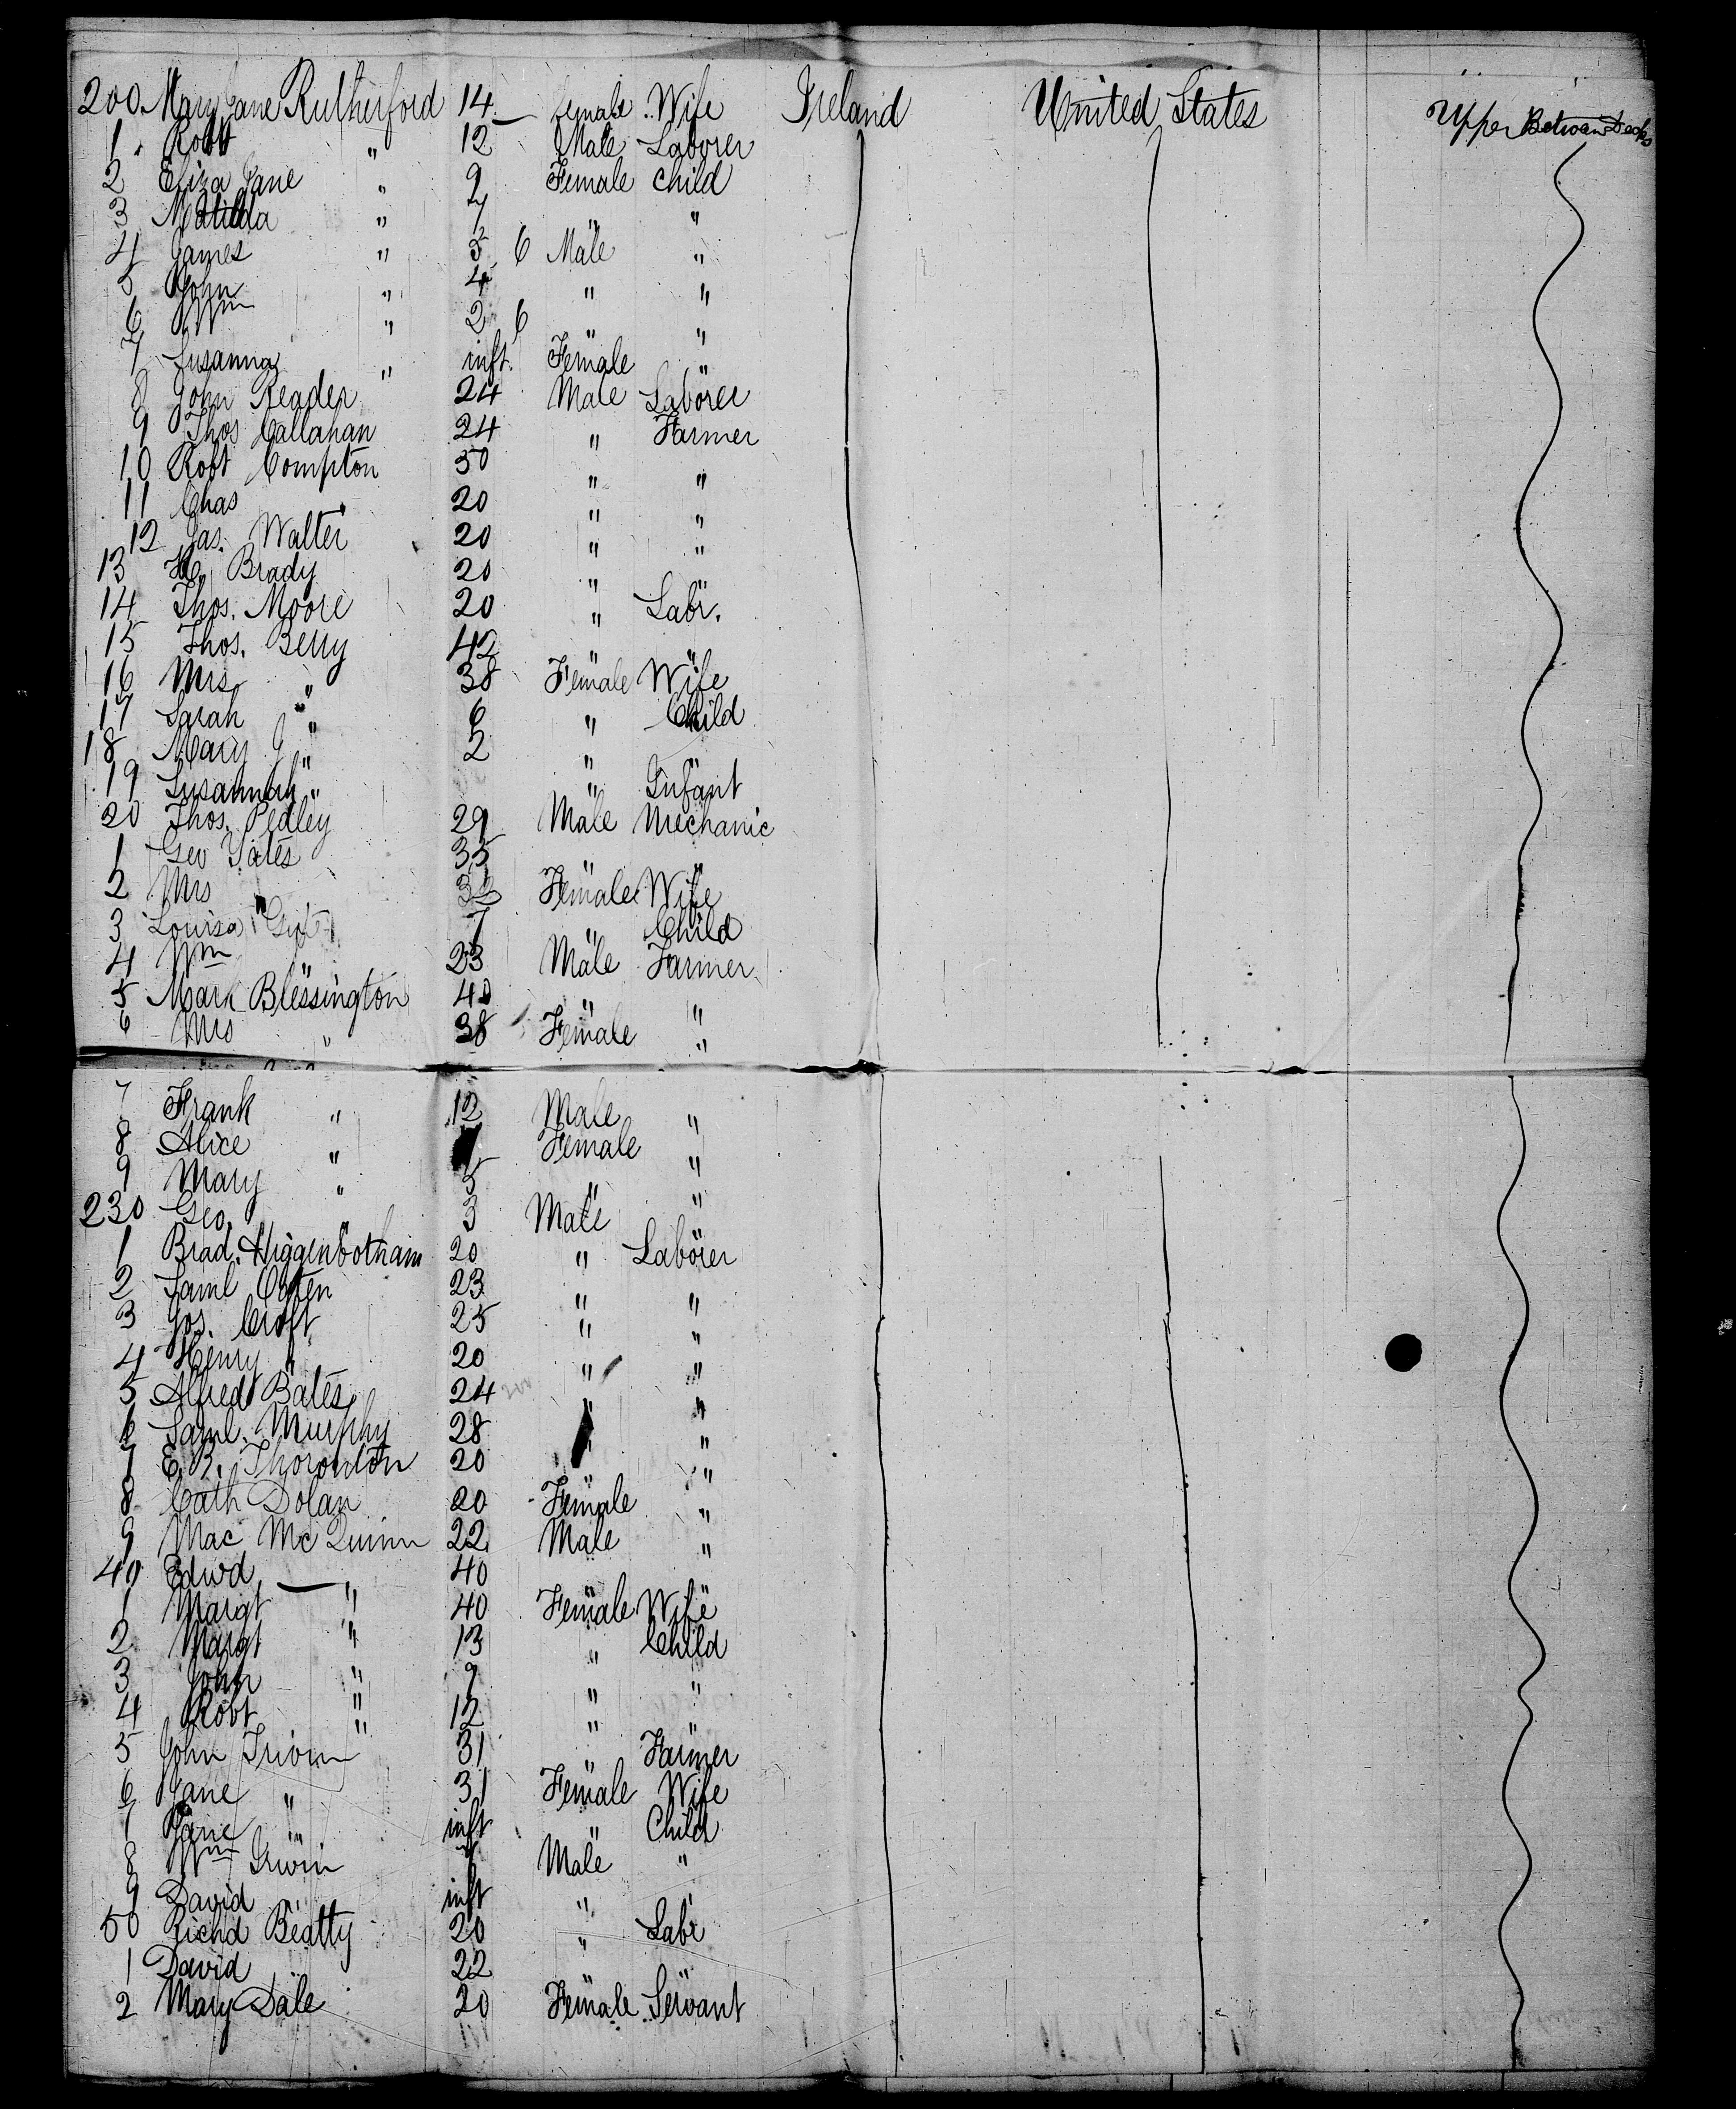 200 Mary Jane Rutherford 14 Female Wife Ireland United States Upper Between Decks
1 Robt " 12 Male Laborer
2 Eliza Jane " 9 Female Child
3 Matilda " 7 " "
4 James " 5 6 Male "
5 John " 4 " "
6 Wm " 2 6 " "
7 Susanna " inft. Female "
8 John Reader 24 Male Laborer
9 Thos Callahan 24 " Farmer
10 Robt Compton 50 " "
11 Chas " 20 " "
12 Jas. Walter 20 " "
13 H. Brady 20 " "
14 Thos. Moore 20 " Labr.
15 Thos. Berry 42 " "
16 Mrs " 38 Female Wife
17 Sarah " 6 " Child
18 Mary J " 2 " "
19 Susannah " " Infant
20 Thos. Pedley 29 Male Mechanic
1 Geo Yates 35 " "
2 Mrs " Female Wife
3 Louisa 7 " Child
4 Wm " 23 Male Farmer
5 Mark Blessington 40 " "
6 Mrs " 38 Female "
7 Frank " 12 Male "
8 Alice " Female "
9 Mary " 5 " "
230 Geo. " 3 Male "
1 Brad. Higgenbotham 20 " Laborer
2 Saml 23 " "
3 Jos. Croft 25 " "
4 Henry " 20 " "
5 Alfred Bates 24 " "
6 Saml. Murphy 28 " "
7 E.B. Thoronton 20 " "
8 Cath Dolan 20 Female "
9 Mac McQuinn 22 Male "
40 Edwd — " 40 " "
1 Margt " 40 Female Wife
2 Margt " 13 " Child
3 John " 9 " "
4 Robt " 12 " "
5 John Irwin 31 " Farmer
6 Jane " 31 Female Wife
7 Jane " inft " Child
8 Wm Irwin Male "
9 David " inft " "
50 Richd Beatty 20 " Labr
1 David " 22 " "
2 Mary Dale 20 Female Servant